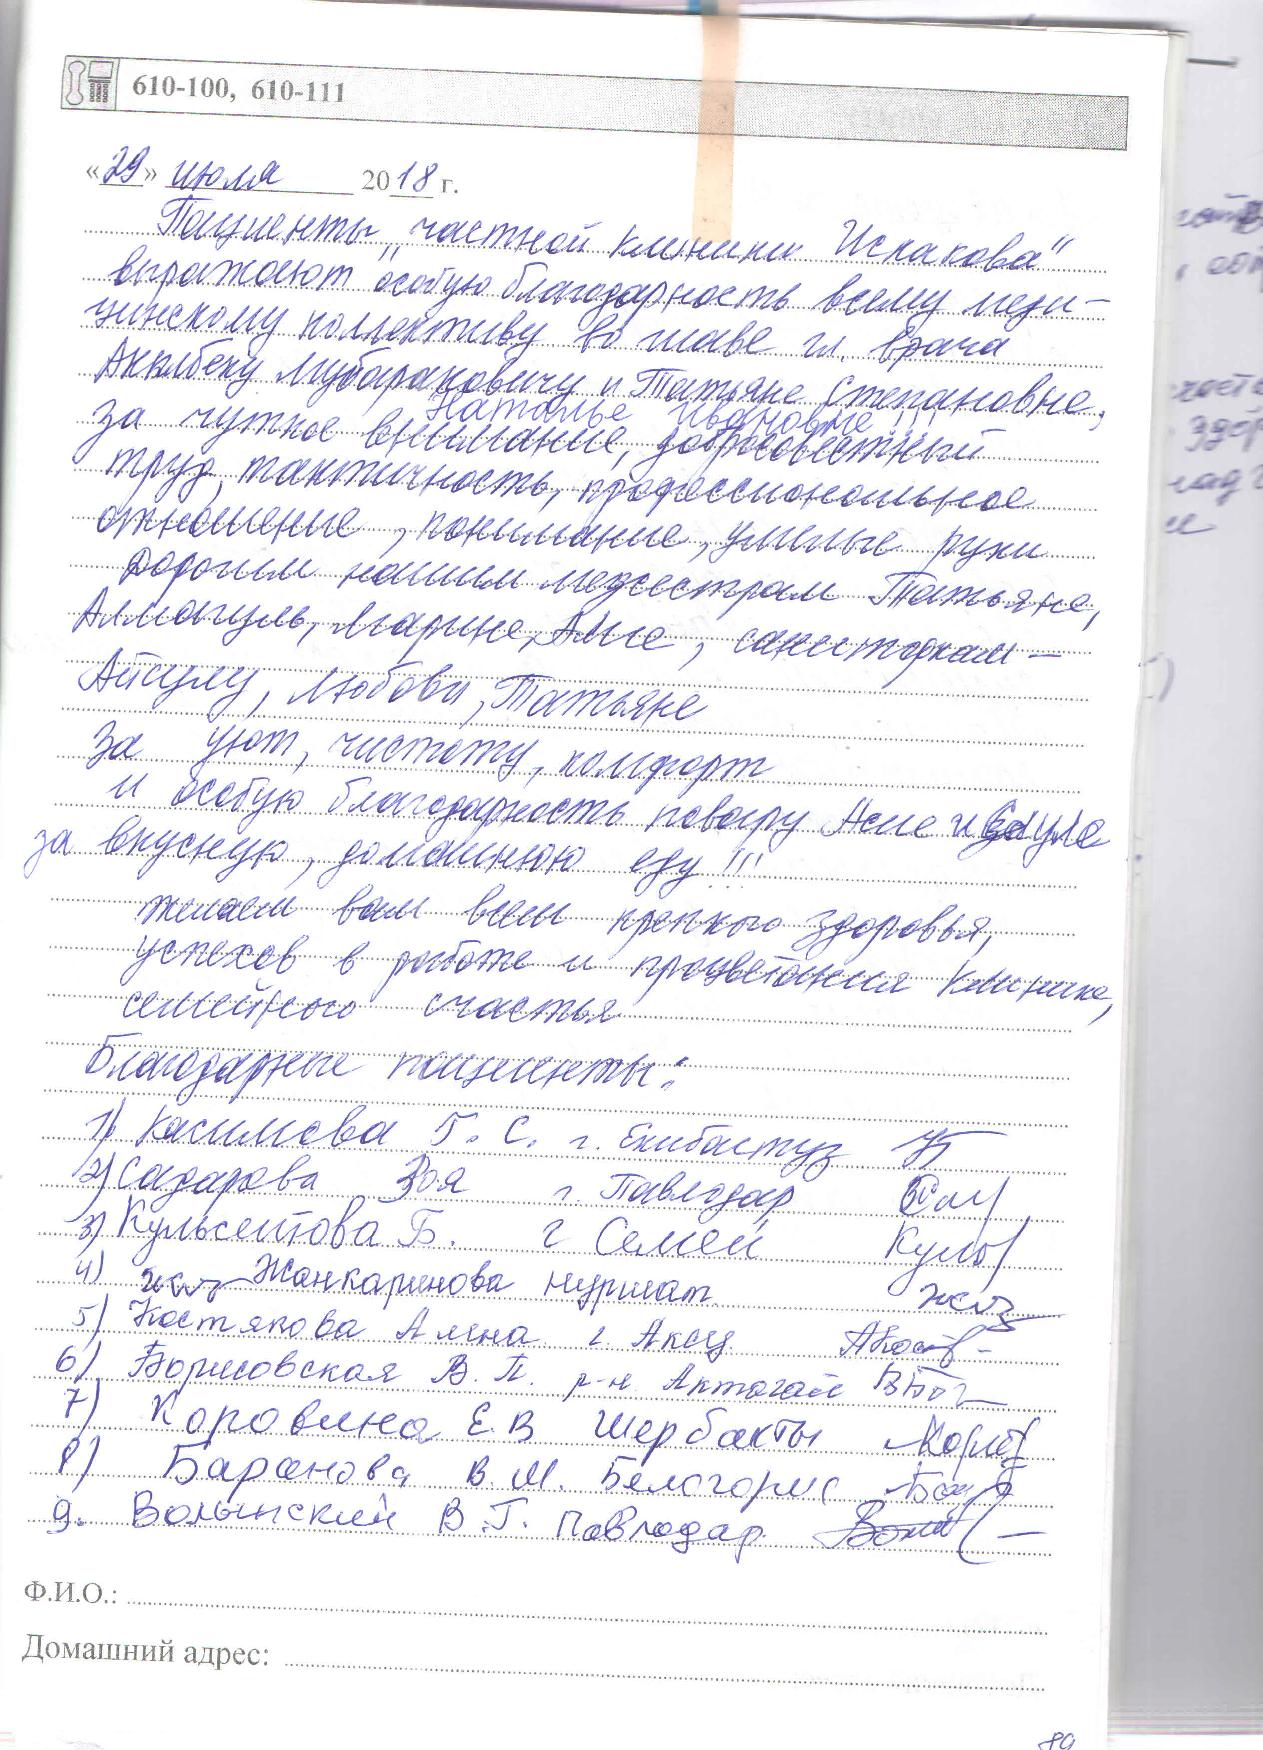 610-100, 610-111
«29» июля 2018 г.
Пациенты „частной клиники Искакова"
выражают особую благодарность всему меди-
цинскому коллективу во главе гл. врача
Акылбеку Мубараковичу и Татьяне Степановне,
Наталье Ивановне !!!
за чуткое внимание, добросовестный
труд, тактичность, профессиональное
отношение, понимание, умелые руки
дорогим нашим медсестрам Татьяне,
Алмагуль, Марине, Асие, санитаркам –
Айсулу, Любови, Татьяне
за уют, чистоту, комфорт
и особую благодарность повару Асие и
за вкусную, домашнюю еду !!!
желаем вам всем крепкого здоровья,
успехов в работе и процветания клинике,
семейного счастья
Благодарные пациенты:
1) Касимова Г. С. г. Екибастуз
2) Садарова Зоя г. Павлодар
3) Кульсеитова Б. г Семей
4) Жанкаринова
5) Костякова Алена г. Аксу
6) Борисовская В. П. р-н Актогай
7) Коровина Е.В Шербакты
8) Баранова В. М. Белогорис
9. Волынский В.Г. Павлодар
Ф.И.О.:
Домашний адрес: